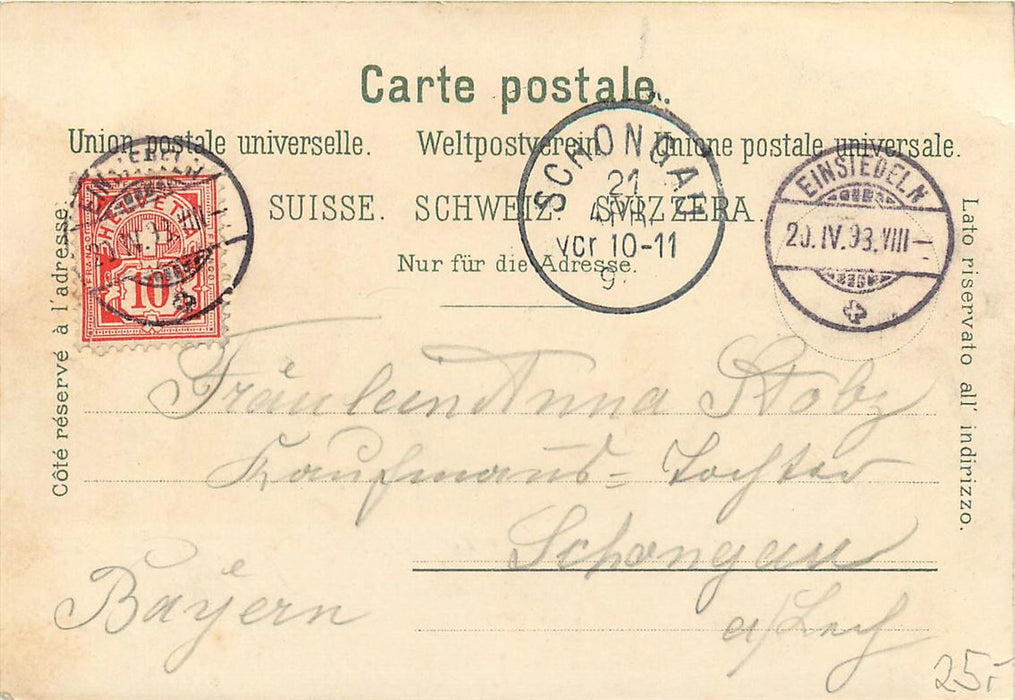 Carte postale.
Union postale universelle. Weltpostverein. Unione postale universale.
SUISSE. SCHWEIZ. SVIZZERA.
Nur für die Adresse.
Côté réservé à l'adresse.
Lato riservato all' indirizzo.
HELVETIA
FRANCO
10
SCHONGAU
21
APR.
vor 10-11
9
EINSIEDELN
20.IV.93.VIII
Fräulein Anna
Kaufmanns=Tochter
Schongau
Bayern
a/Lech
25.-